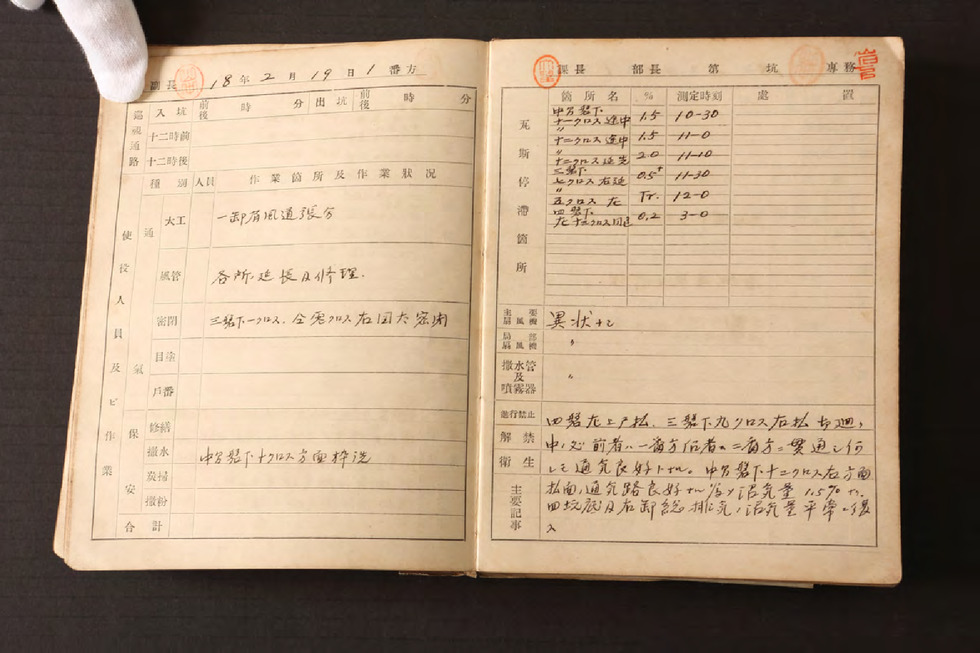 副長 18年2月19日1番方
巡視通路 入坑 前後 時 分 出坑 前後 時 分
十二時前
十二時後
種別 人員 作業箇所及作業状況
使役人員及ビ作業
通気
保安
大工 一卸右風道張分
風管 各所延長及修理.
密閉 三盤下一クロス、全クロス右
目塗
戸番
修繕
撒水 中部盤下十クロス方面枠洗
炭掃
撒粉
合計
課長 部長 第 坑 専務
瓦斯停滞箇所
箇所名 測定時刻 処置
十一クロス途中 1.5 10-30
〃十二クロス途中 1.5 11-0
〃十二クロス延先 2.0 11-10
三盤下七クロス右延 0.5+ 11-30
〃 クロス左 Tr. 12-0
四盤下 左十二クロス 0.2 3-0
主要扇風機 異状ナシ
局部扇風機 〃
撒水管及噴霧器 〃
進行禁止
解禁
衛生
主要記事
四盤左上戸払、三盤下九クロス右払
前者ハ一番方 二番方ニ貫通シ何
レモ通気良好トナル。中部盤下十二クロス右方面
払面ノ通気路良好 沼気量1.5%
四坑底及右卸総排気ノ沼気量平常